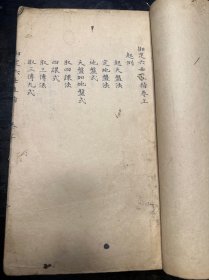 御定六壬直指卷上
起例
起天盤法
定地盤法
地盤式
天盤加地盤式
取四課法
四課式
取三傳法
取三傳九式